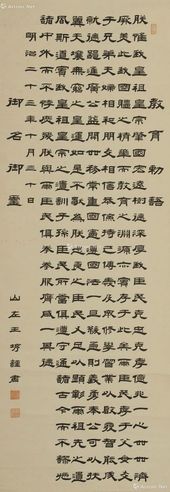 教育勅語
朕惟我皇祖皇宗肇國宏遠樹德深厚我臣民克忠克孝億兆一心世世濟
厥美此我國體之精華而教育之淵源亦實存乎此爾臣民孝于父母友
于兄弟夫婦相和朋友相信恭儉持己博愛及眾修學習業以啟發智能成
就德器進廣公益開世務常重國憲遵國法一旦緩急則義勇奉公以扶
翼天壤無窮之皇運如是不獨為朕忠良臣民又足以顯彰爾祖先之遺
風矣斯道也實我皇祖皇宗之遺訓而子孫臣民所當遵守通諸古今而不謬施
諸中外而不悖朕庶幾與爾臣民俱拳拳服膺咸一其德
明治二十三年十月三十日
御名御璽
山左王謹書